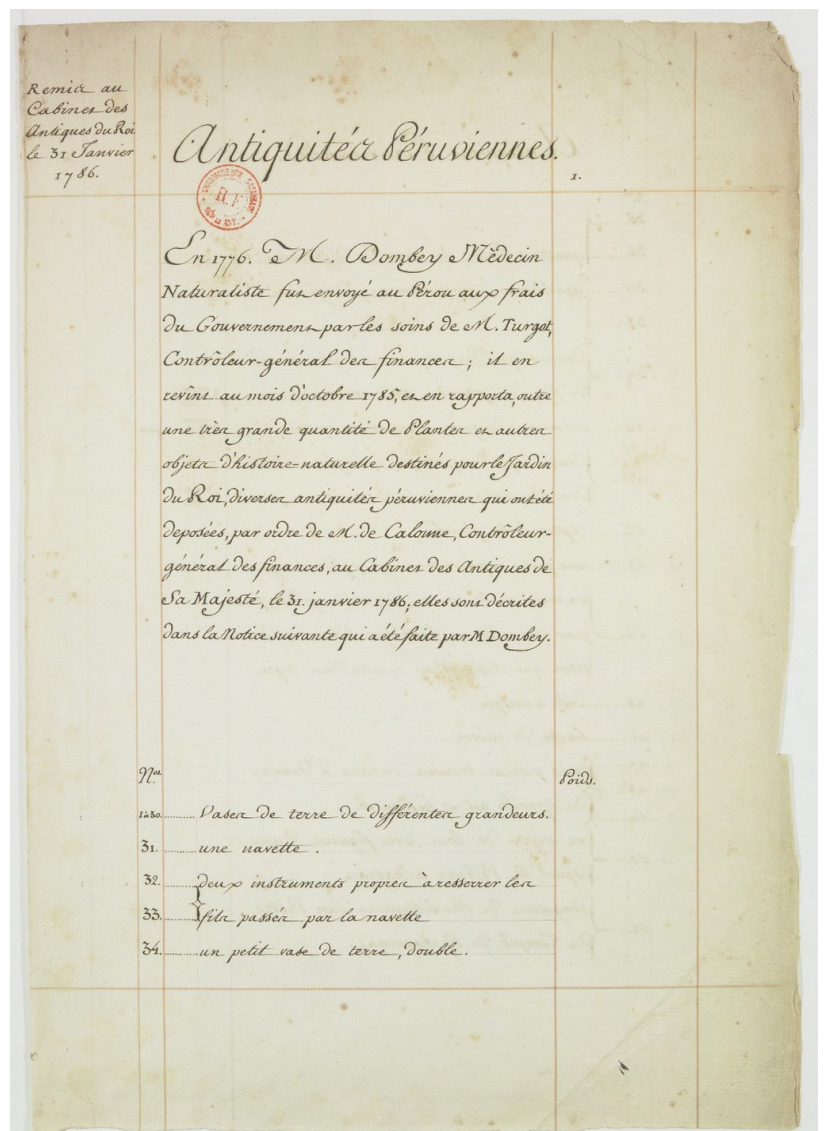 Remis au
Cabinet des
Antiques du Roi
le 31 Janvier
1786.
Antiquités Péruviennes.
1.
R.F
En 1776. M. Dombey Mèdecin
Naturaliste fut envoyé au Pérou aux frais
du Gouvernement par les soins de M. Turgot,
Contrôleur-général des finances; il en
revint au mois d'octobre 1785, et en rapporta, outre
une très grande quantité de Plantes et autres
objets d'histoire=naturelle destinés pour le Jardin
du Roi, diverses antiquités péruviennes qui ont été
deposées, par ordre de M. de Calonne, Contrôleur-
général des finances, au Cabinet des Antiques de
Sa Majesté, le 31. janvier 1786; elles sont décrites
dans la Notice suivante qui a été faite par M Dombey.
Nos. Poids.
1 à 30. Vases de terre de différentes grandeurs.
31. une navette.
32. deux instruments propres à resserrer les
33. fils passés par la navette
34. un petit vase de terre, double.